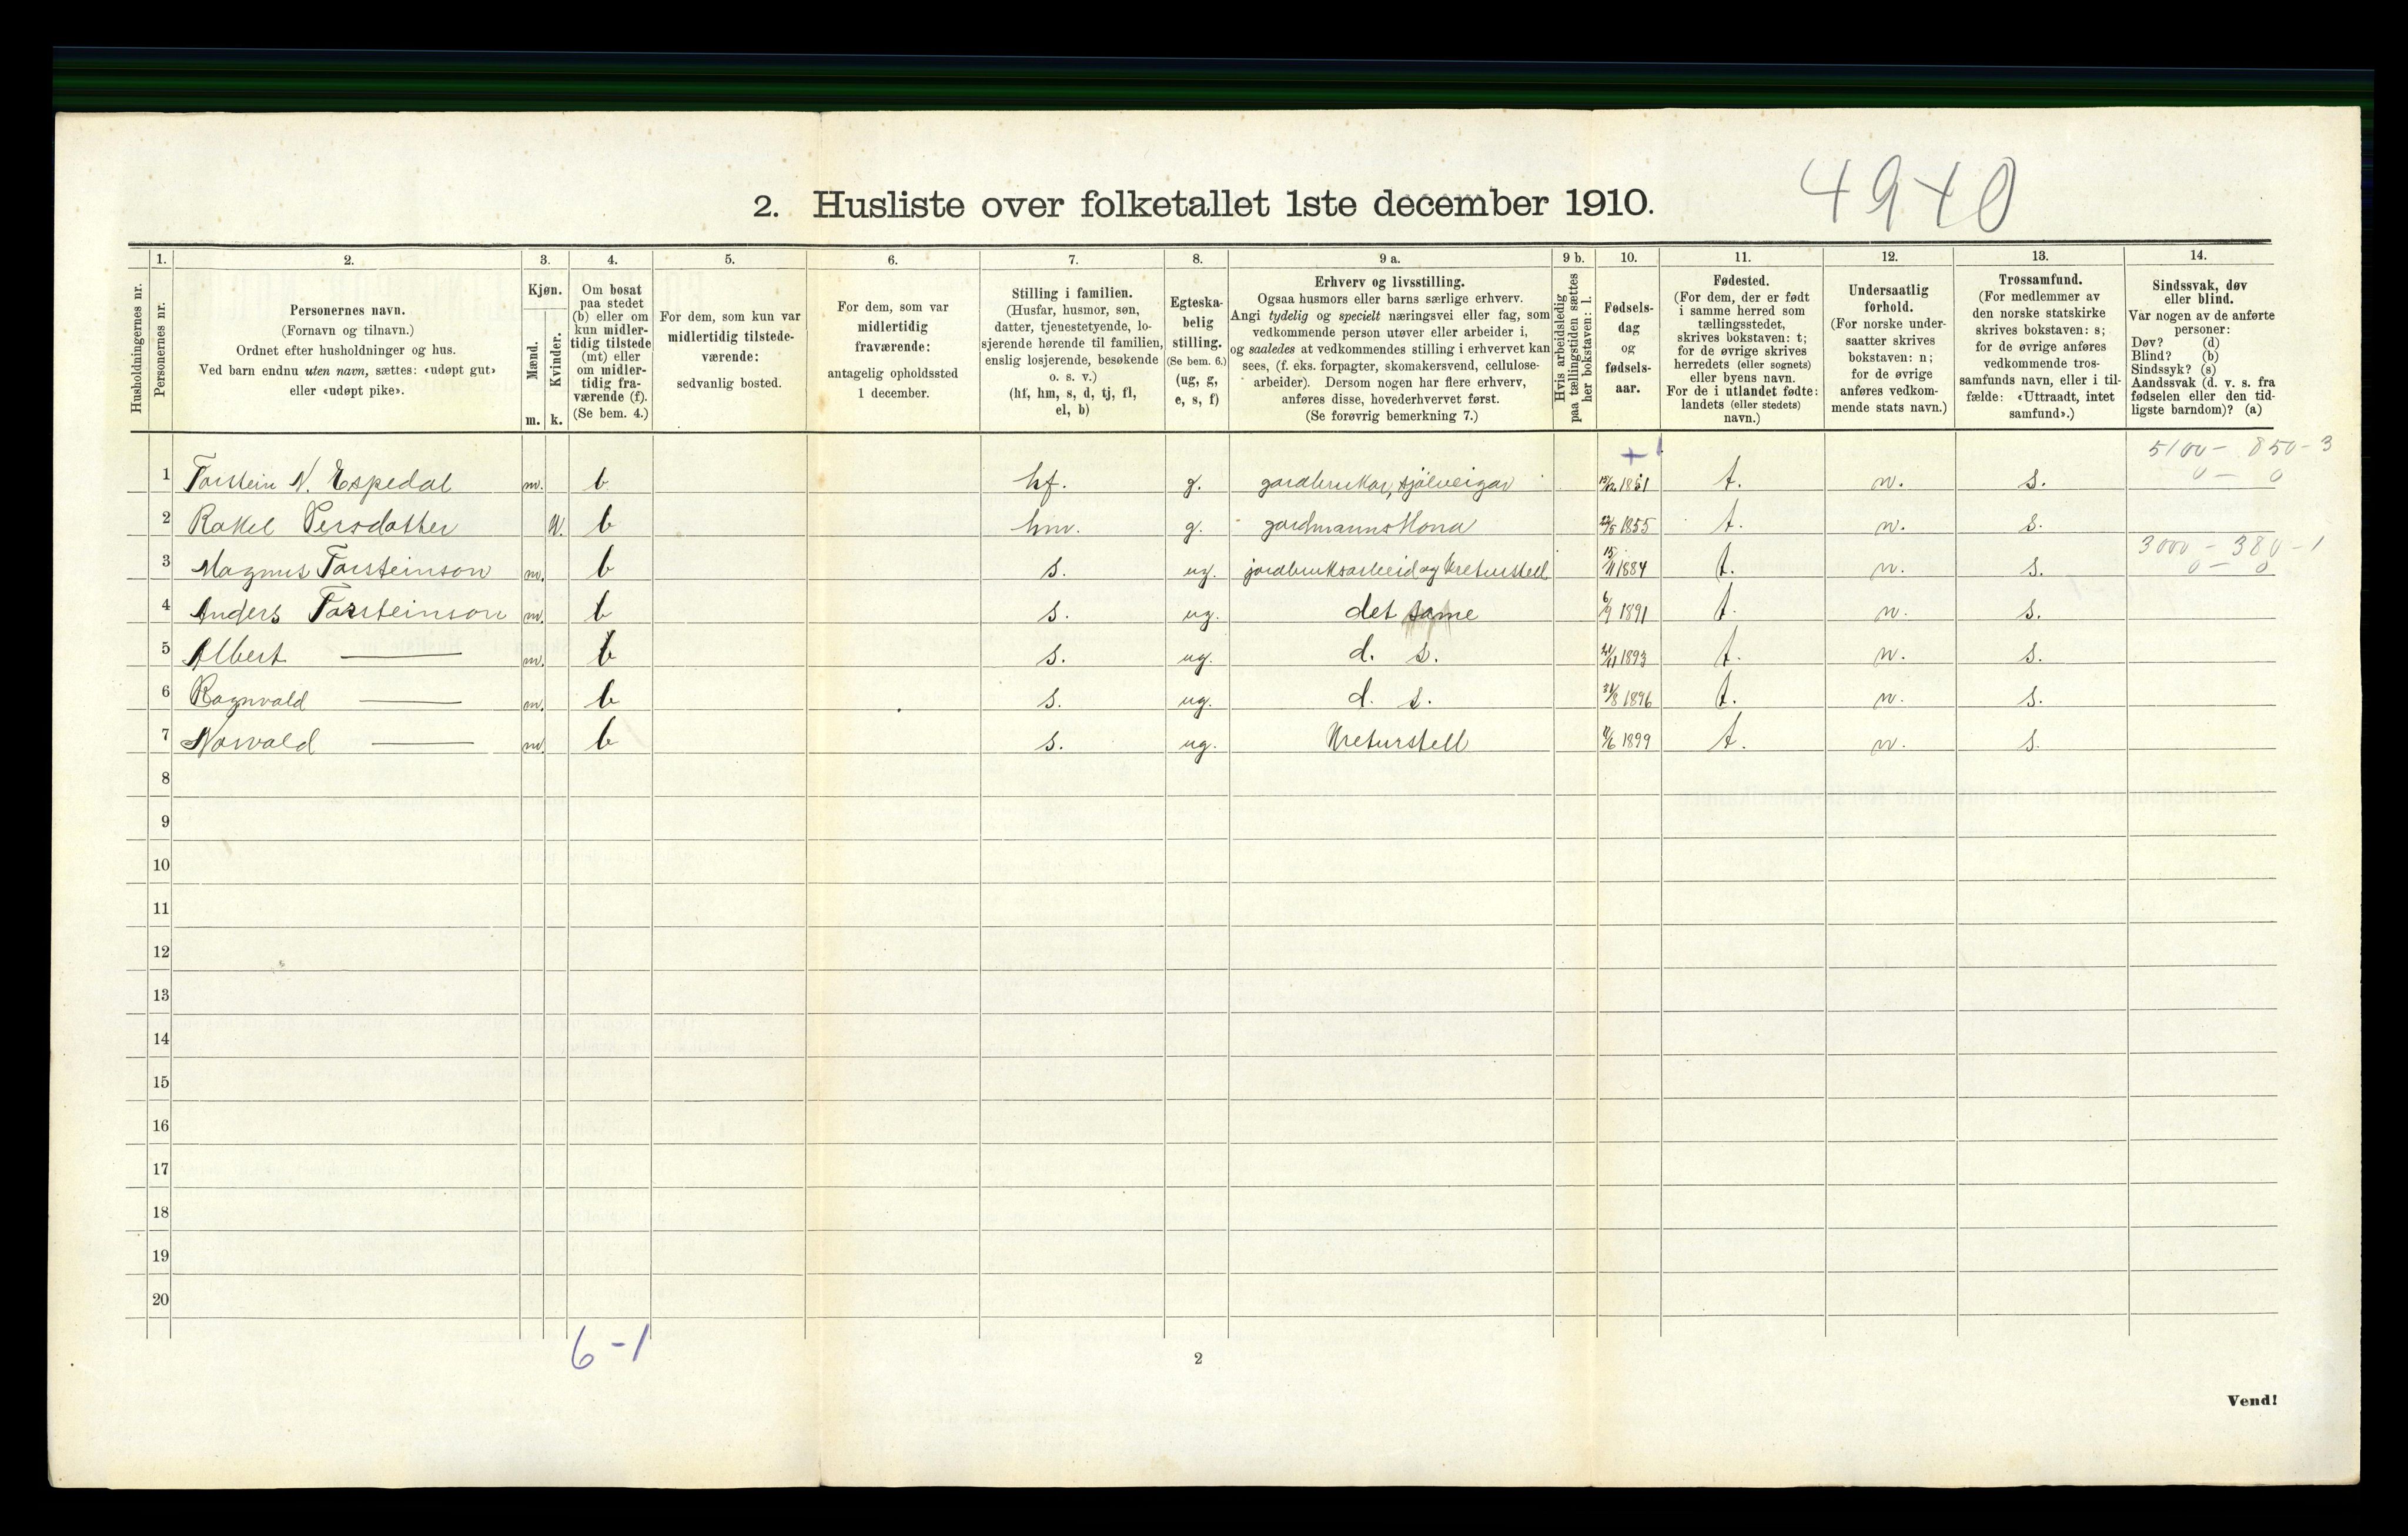 4940
2. Husliste over folketallet 1ste december 1910.
Husholdningernes nr.
1.
Personernes nr.
2.
Personernes navn.
(Fornavn og tilnavn.)
Ordnet efter husholdninger og hus.
Ved barn endnu uten navn, sættes: «udøpt gut»
eller «udøpt pike».
3.
Kjøn.
Mænd.
Kvinder.
m. k.
4.
Om bosat
paa stedet
(b) eller om
kun midler-
tidig tilstede
(mt) eller
om midler-
tidig fra-
værende (f).
(Se bem. 4.)
5.
For dem, som kun var
midlertidig tilstede-
værende:
sedvanlig bosted.
6.
For dem, som var
midlertidig
fraværende:
antagelig opholdssted
1 december.
7.
Stilling i familien.
(Husfar, husmor, søn,
datter, tjenestetyende, lo-
sjerende hørende til familien,
enslig losjerende, besøkende
o. s. v.)
(hf, hm, s, d, tj, fl,
el, b)
8.
Egteska-
belig
stilling.
(Se bem. 6.)
(ug, g,
e, s, f)
9 a.
Erhverv og livsstilling.
Ogsaa husmors eller barns særlige erhverv.
Angi tydelig og specielt næringsvei eller fag, som
vedkommende person utøver eller arbeider i,
og saaledes at vedkommendes stilling i erhvervet kan
sees, (f. eks. forpagter, skomakersvend, cellulose-
arbeider). Dersom nogen har flere erhverv,
anføres disse, hovederhvervet først.
(Se forøvrig bemerkning 7.)
9 b.
Hvis arbeidsledig
paa tællingstiden sættes
her bokstaven: l.
10.
Fødsels-
dag
og
fødsels-
aar.
11.
Fødested.
(For dem, der er født
i samme herred som
tællingsstedet,
skrives bokstaven: t;
for de øvrige skrives
herredets (eller sognets)
eller byens navn.
For de i utlandet fødte:
landets (eller stedets)
navn.)
12.
Undersaatlig
forhold.
(For norske under-
saatter skrives
bokstaven: n;
for de øvrige
anføres vedkom-
mende stats navn.)
13.
Trossamfund.
(For medlemmer av
den norske statskirke
skrives bokstaven: s;
for de øvrige anføres
vedkommende tros-
samfunds navn, eller i til-
fælde: «Uttraadt, intet
samfund».)
14.
Sindssvak, døv
eller blind.
Var nogen av de anførte
personer:
Døv? (d)
Blind? (b)
Sindssyk? (s)
Aandssvak (d. v. s. fra
fødselen eller den tid-
ligste barndom)? (a)
+1
5100 - 850 - 3
0 - 0
1 Torstein N. Espedal m. b hf. g. gardbrukar, sjölveigar 1851 t. n. s.
2 Rakel Persdatter k. b hm. g. gardmannskona 22/5 1855 t. n. s.
3000 - 380 - 1
0 - 0
3 Magnus Torsteinson m. b s. ug. jordbruksarbeid og kreturstell 15/11 1884 t. n. s.
4 Anders Torsteinson m. b s. ug. det same 6/9 1891 t. n. s.
5 Albert — m. b s. ug. d. s. 21/11 1893 t. n. s.
6 Ragnvald — m. b s. ug. d. s. 31/8 1896 t. n. s.
7 Norvald — m. b s. ug. Kreturstell 1899 t. n. s.
8
9
10
11
12
13
14
15
16
17
18
19
20
6-1
2
Vend!